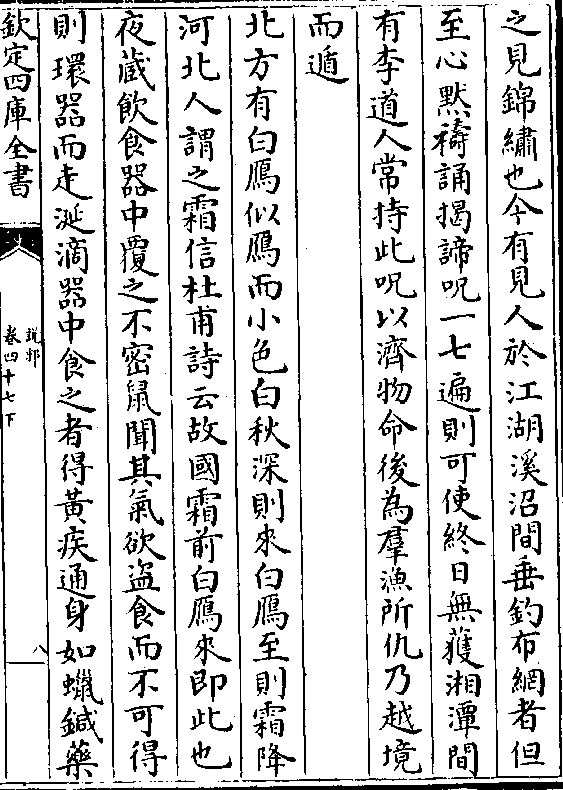 之見錦繡也今有見人於江湖溪沼間垂釣布網者但
至心默禱誦揭諦呪一七遍則可使終日無獲湘潭間
有李道人常持此呪以濟物命後為羣漁所仇乃越境
而遁
北方有白鴈似鴈而小色白秋深則來白鴈至則霜降
河北人謂之霜信杜甫詩云故國霜前白鴈來即此也
夜蔵飲食器中覆之不密鼠聞其氣欲盗食而不可得
則環器而走涎滴器中食之者得黃疾通身如蠟鍼藥
欽定四庫全書
說郛
卷四十七下
八